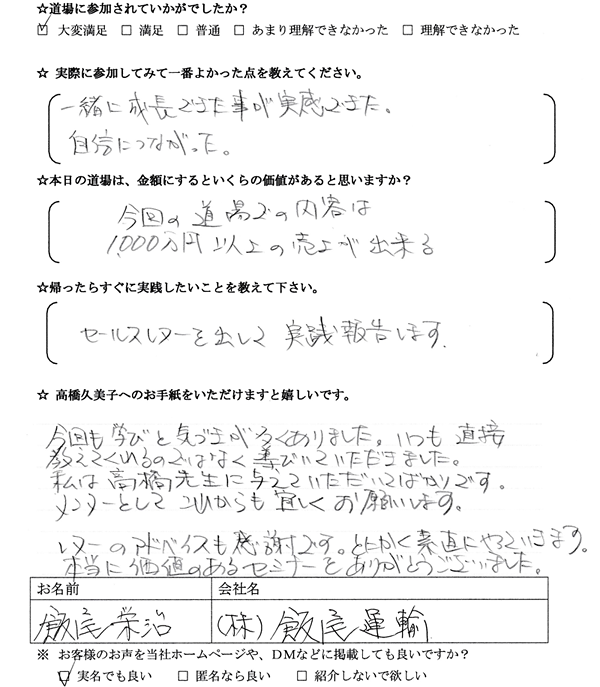 ☆道場に参加されていかがでしたか？
☑ 大変満足 □ 満足 □ 普通 □ あまり理解できなかった □ 理解できなかった
☆ 実際に参加してみて一番よかった点を教えてください。
一緒に成長できた事が実感できた。
自信につながった。
☆本日の道場は、金額にするといくらの価値があると思いますか？
今回の道場での内容は
1,000万円以上の売上が出来る
☆帰ったらすぐに実践したいことを教えて下さい。
セールスレターを出して実践報告します。
☆ 高橋久美子へのお手紙をいただけますと嬉しいです。
今回も学びと気づきが多くありました。いつも直接
教えてくれるのではなく導びいていただきました。
私は高橋先生に与えていただいてばかりです。
メンターとしてこれからも宜しくお願いします。
レターのアドベイスも感謝です。とにかく素直にやっていきます。
本当に価値のあるセミナーをありがとうございました。
お名前 会社名
飯尾栄治 (株)飯尾運輸
※ お客様のお声を当社ホームページや、DMなどに掲載しても良いですか？
☑ 実名でも良い □ 匿名なら良い □ 紹介しないで欲しい